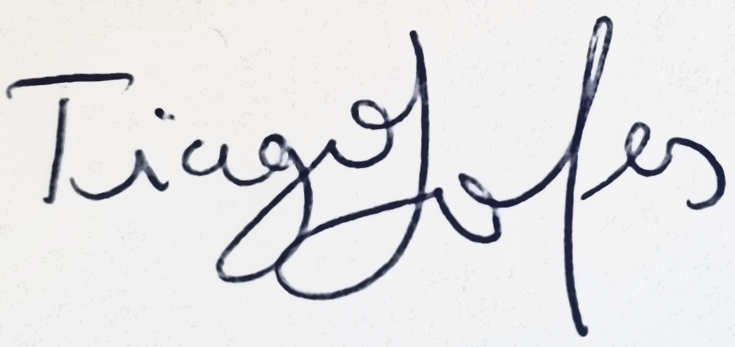 Tiago Lopes